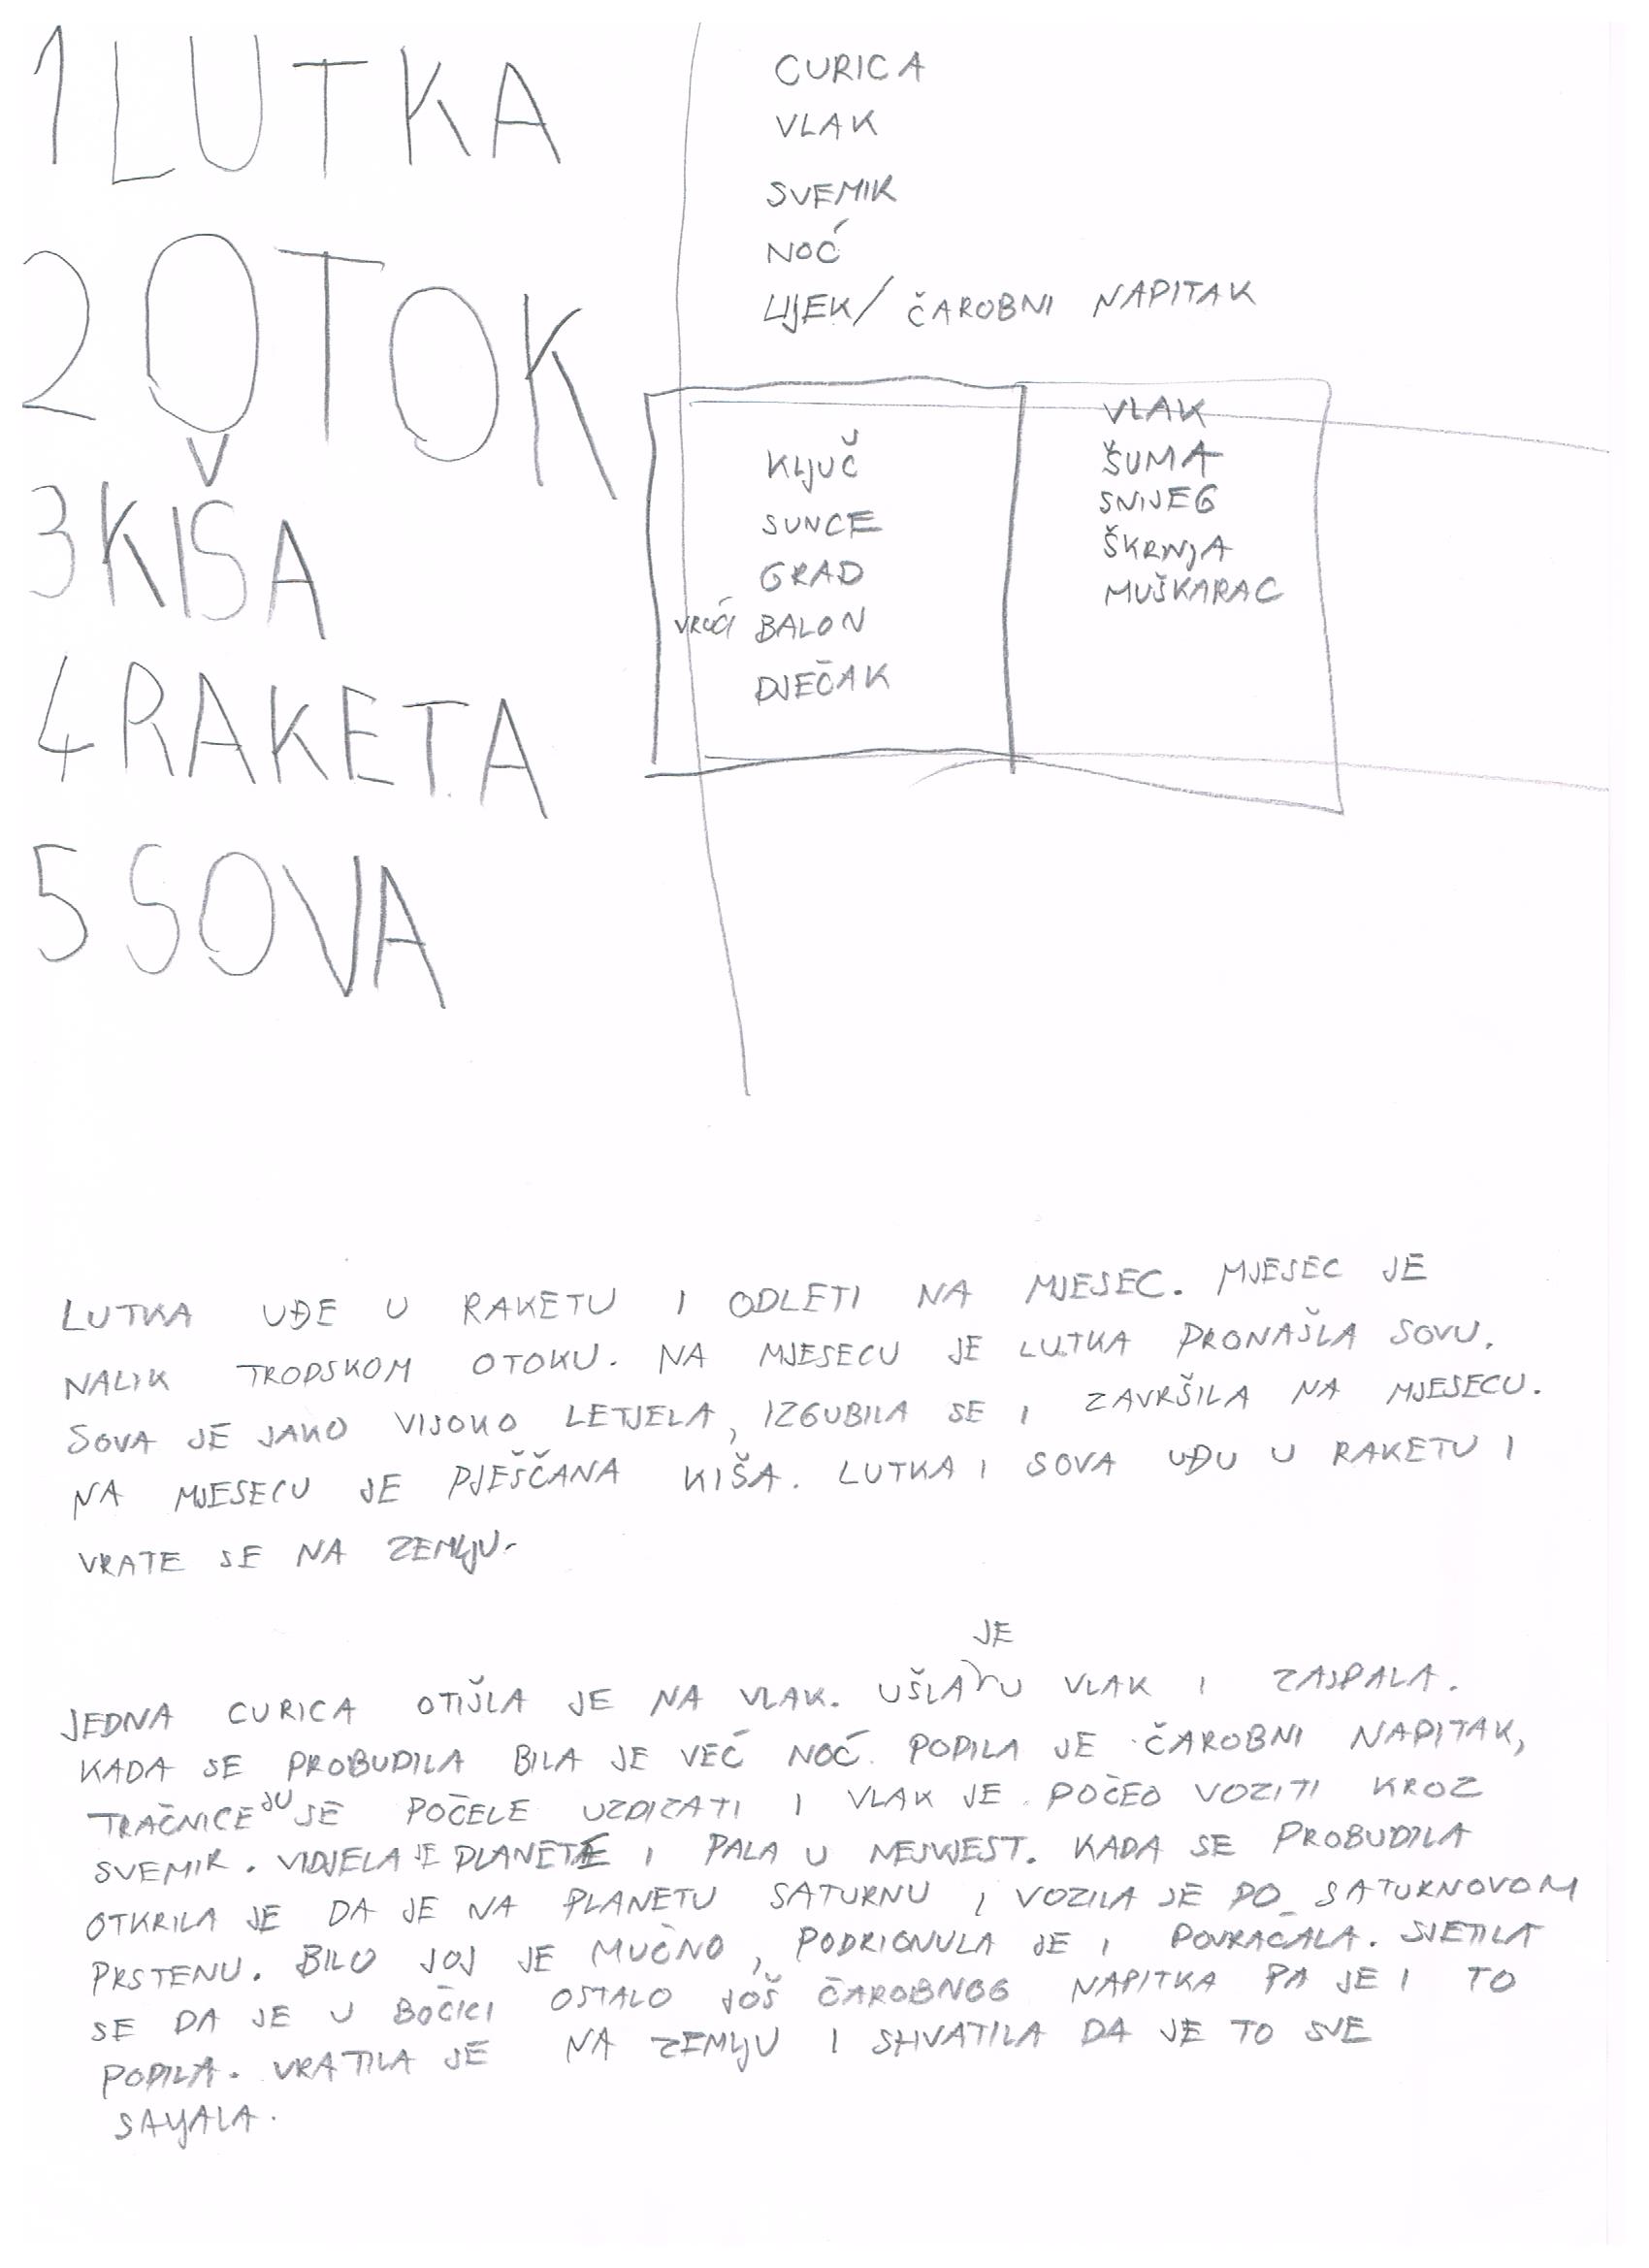 1 LUTKA
2 OTOK
3 KIŠA
4 RAKETA
5 SOVA
CURICA
VLAK
SVEMIR
NOĆ
LIJEK/ ČAROBNI NAPITAK
KLJUČ
SUNCE
GRAD
VRUĆI BALON
DJEČAK
VLAK
ŠUMA
SNIJEG
ŠKRINJA
MUŠKARAC
LUTKA UĐE U RAKETU I ODLETI NA MJESEC. MJESEC JE
NALIK TROPSKOM OTOKU. NA MJESECU JE LUTKA PRONAŠLA SOVU.
SOVA JE JAKO VISOKO LETJELA, IZGUBILA SE I ZAVRŠILA NA MJESECU.
NA MJESECU JE PJEŠČANA KIŠA. LUTKA I SOVA UĐU U RAKETU I
VRATE SE NA ZEMLJU.
JEDNA CURICA OTIŠLA JE NA VLAK. UŠLA JE U VLAK I ZASPALA.
KADA SE PROBUDILA BILA JE VEĆ NOĆ. POPILA JE ČAROBNI NAPITAK,
TRAČNICE SU SE POČELE UZDIZATI I VLAK JE POČEO VOZITI KROZ
SVEMIR. VIDJELA JE PLANETE I PALA U NESVJEST. KADA SE PROBUDILA
OTKRILA JE DA JE NA PLANETU SATURNU I VOZILA JE PO SATURNOVOM
PRSTENU. BILO JOJ JE MUČNO, PODRIGNULA JE I POVRAĆALA. SJETILA
SE DA JE U BOČICI OSTALO JOŠ ČAROBNOG NAPITKA PA JE I TO
POPILA. VRATILA JE NA ZEMLJU I SHVATILA DA JE TO SVE
SANJALA.